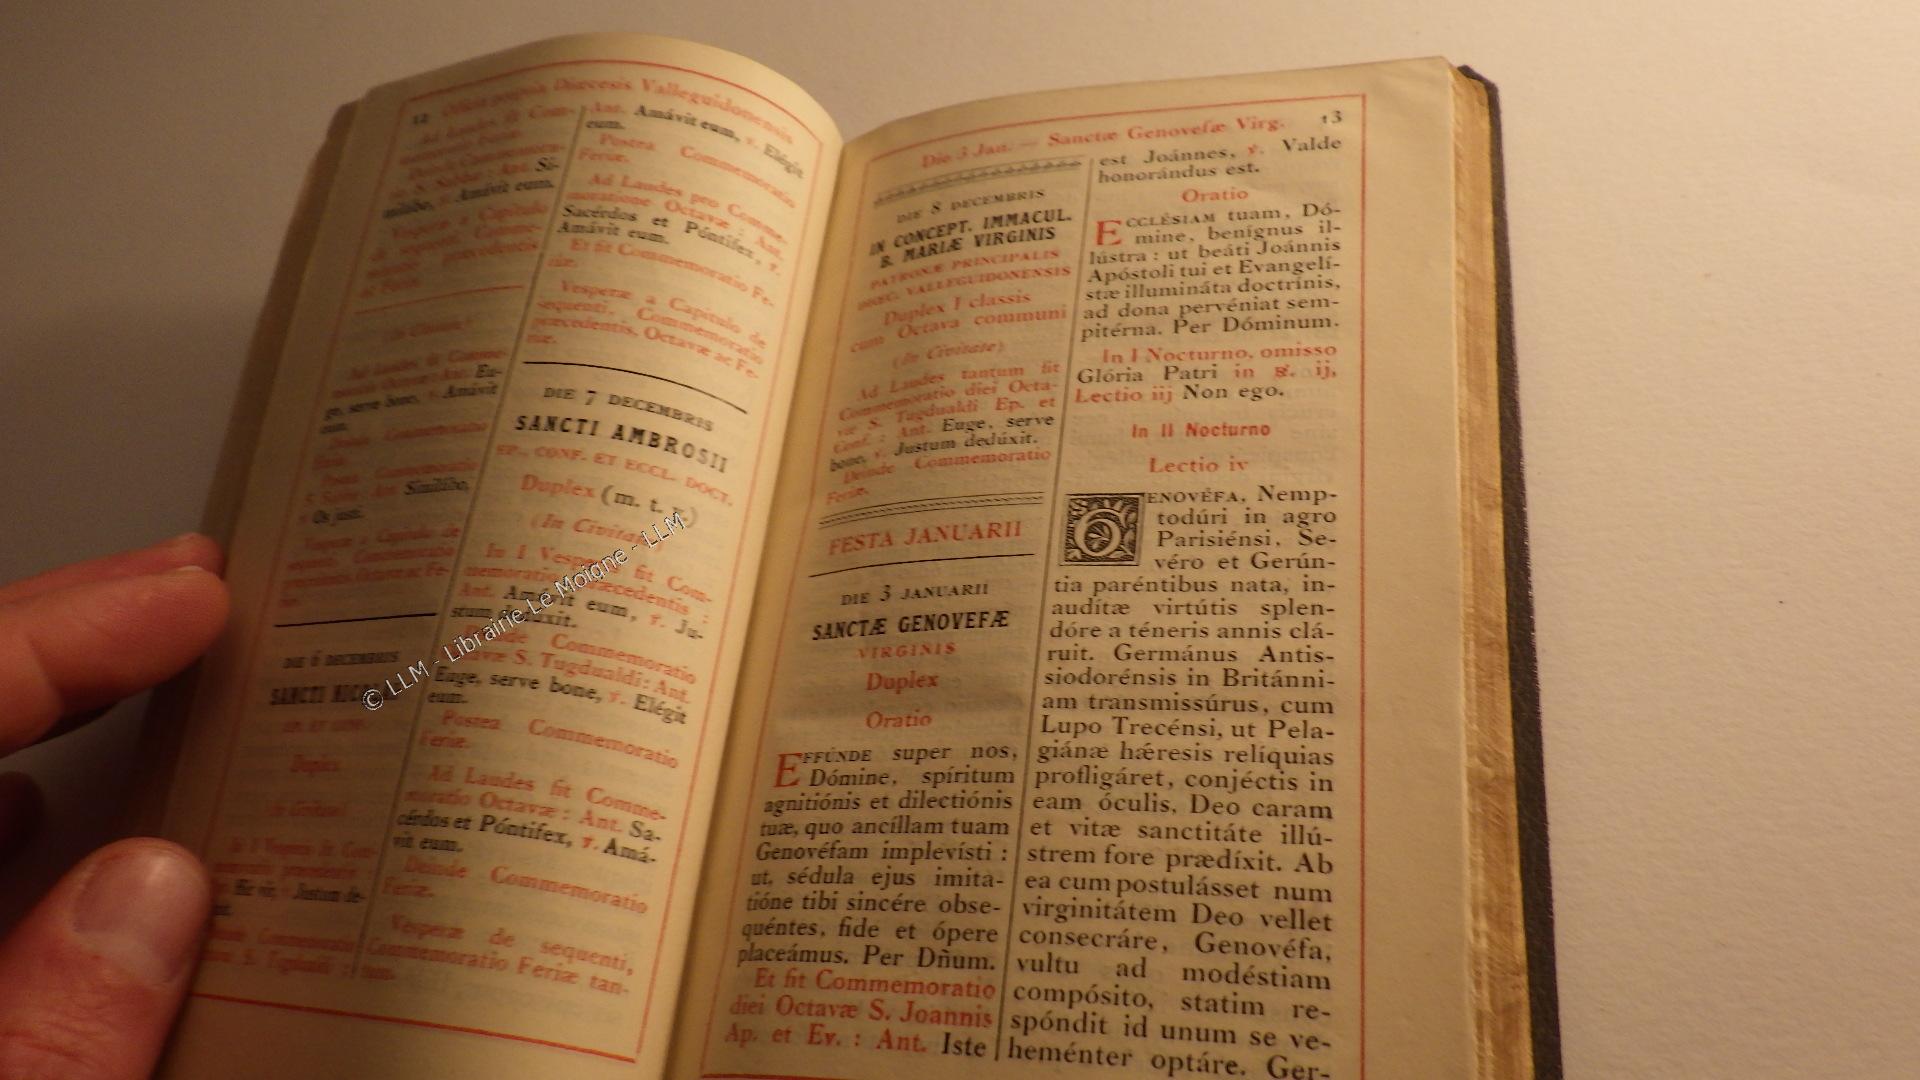 12 Officia propria Diœcesis Valleguidonensis
Ad Laudes fit Com-
S. Sabbæ : Ant. Si-
milabo, ℣. Amávit eum.
Vesperæ a Capitulo
de sequenti, Comme-
præcedentis
ac Feriæ.
(In Civitate)
Ad Laudes fit Comme-
Octavæ : Ant. Eu-
ge, serve bone, ℣. Amávit
eum.
Deinde Commemoratio
Feriæ.
Postea Commemoratio
S. Sabbæ : Ant. Similábo,
℣. Os justi.
Vesperæ a Capitulo de
DIE 6 DECEMBRIS
SANCTI
EP. ET CONF.
Duplex
Hic vir, ℣. Justum de-
S. Tugdualdi :
Ant. Amávit eum, ℣. Elégit
eum.
Postea Commemoratio
Feriæ.
Ad Laudes pro Comme-
moratione Octavæ : Ant.
Sacérdos et Póntifex, ℣.
Amávit eum.
Et fit Commemoratio Fe-
riæ.
Vesperæ a Capitulo de
sequenti, Commemoratio
præcedentis, Octavæ ac Fe-
riæ.
DIE 7 DECEMBRIS
SANCTI AMBROSII
EP., CONF. ET ECCL. DOCT.
Duplex (m. t. v.)
(In Civitate)
In I Vesperis fit Com-
memoratio præcedentis :
Ant. Amávit eum, ℣. Ju-
stum dedúxit.
Deinde Commemoratio
Octavæ S. Tugdualdi : Ant.
Euge, serve bone, ℣. Elégit
eum.
Postea Commemoratio
Feriæ.
Ad Laudes fit Comme-
moratio Octavæ : Ant. Sa-
cérdos et Póntifex, ℣. Amá-
vit eum.
Deinde Commemoratio
Feriæ.
Vesperæ de sequenti,
Commemoratio Feriæ tan-
tum.
© LLM - Librairie Le Moigne - LLM
Die 3 Jan. — Sanctæ Genovefæ Virg. 13
DIE 8 DECEMBRIS
IN CONCEPT. IMMACUL.
B. MARIÆ VIRGINIS
PATRONÆ PRINCIPALIS
DIŒC. VALLEGUIDONENSIS
Duplex I classis
cum Octava communi
(In Civitate)
Ad Laudes tantum fit
Commemoratio diei Octa-
væ S. Tugdualdi Ep. et
Conf. : Ant. Euge, serve
bone, ℣. Justum dedúxit.
Deinde Commemoratio
Feriæ.
FESTA JANUARII
DIE 3 JANUARII
SANCTÆ GENOVEFÆ
VIRGINIS
Duplex
Oratio
EFFÚNDE super nos,
Dómine, spíritum
agnitiónis et dilectiónis
tuæ, quo ancíllam tuam
Genovéfam implevísti :
ut, sédula ejus imita-
tióne tibi sincére obse-
quéntes, fide et ópere
placeámus. Per Dñum.
Et fit Commemoratio
diei Octavæ S. Joannis
Ap. et Ev. : Ant. Iste
est Joánnes, ℣. Valde
honorándus est.
Oratio
ECCLÉSIAM tuam, Dó-
mine, benígnus il-
lústra : ut beáti Joánnis
Apóstoli tui et Evangelí-
stæ illumináta doctrínis,
ad dona pervéniat sem-
pitérna. Per Dóminum.
In I Nocturno, omisso
Glória Patri in ℟. ij,
Lectio iij Non ego.
In II Nocturno
Lectio iv
GENOVÉFA, Nemp-
todúri in agro
Parisiénsi, Se-
véro et Gerún-
tia paréntibus nata, in-
audítæ virtútis splen-
dóre a téneris annis clá-
ruit. Germánus Antis-
siodorénsis in Británni-
am transmissúrus, cum
Lupo Trecénsi, ut Pela-
giánæ hǽresis relíquias
profligáret, conjéctis in
eam óculis, Deo caram
et vitæ sanctitáte illú-
strem fore prædíxit. Ab
ea cum postulásset num
virginitátem Deo vellet
consecráre, Genovéfa,
vultu ad modéstiam
compósito, statim re-
spóndit id unum se ve-
heménter optáre. Ger-